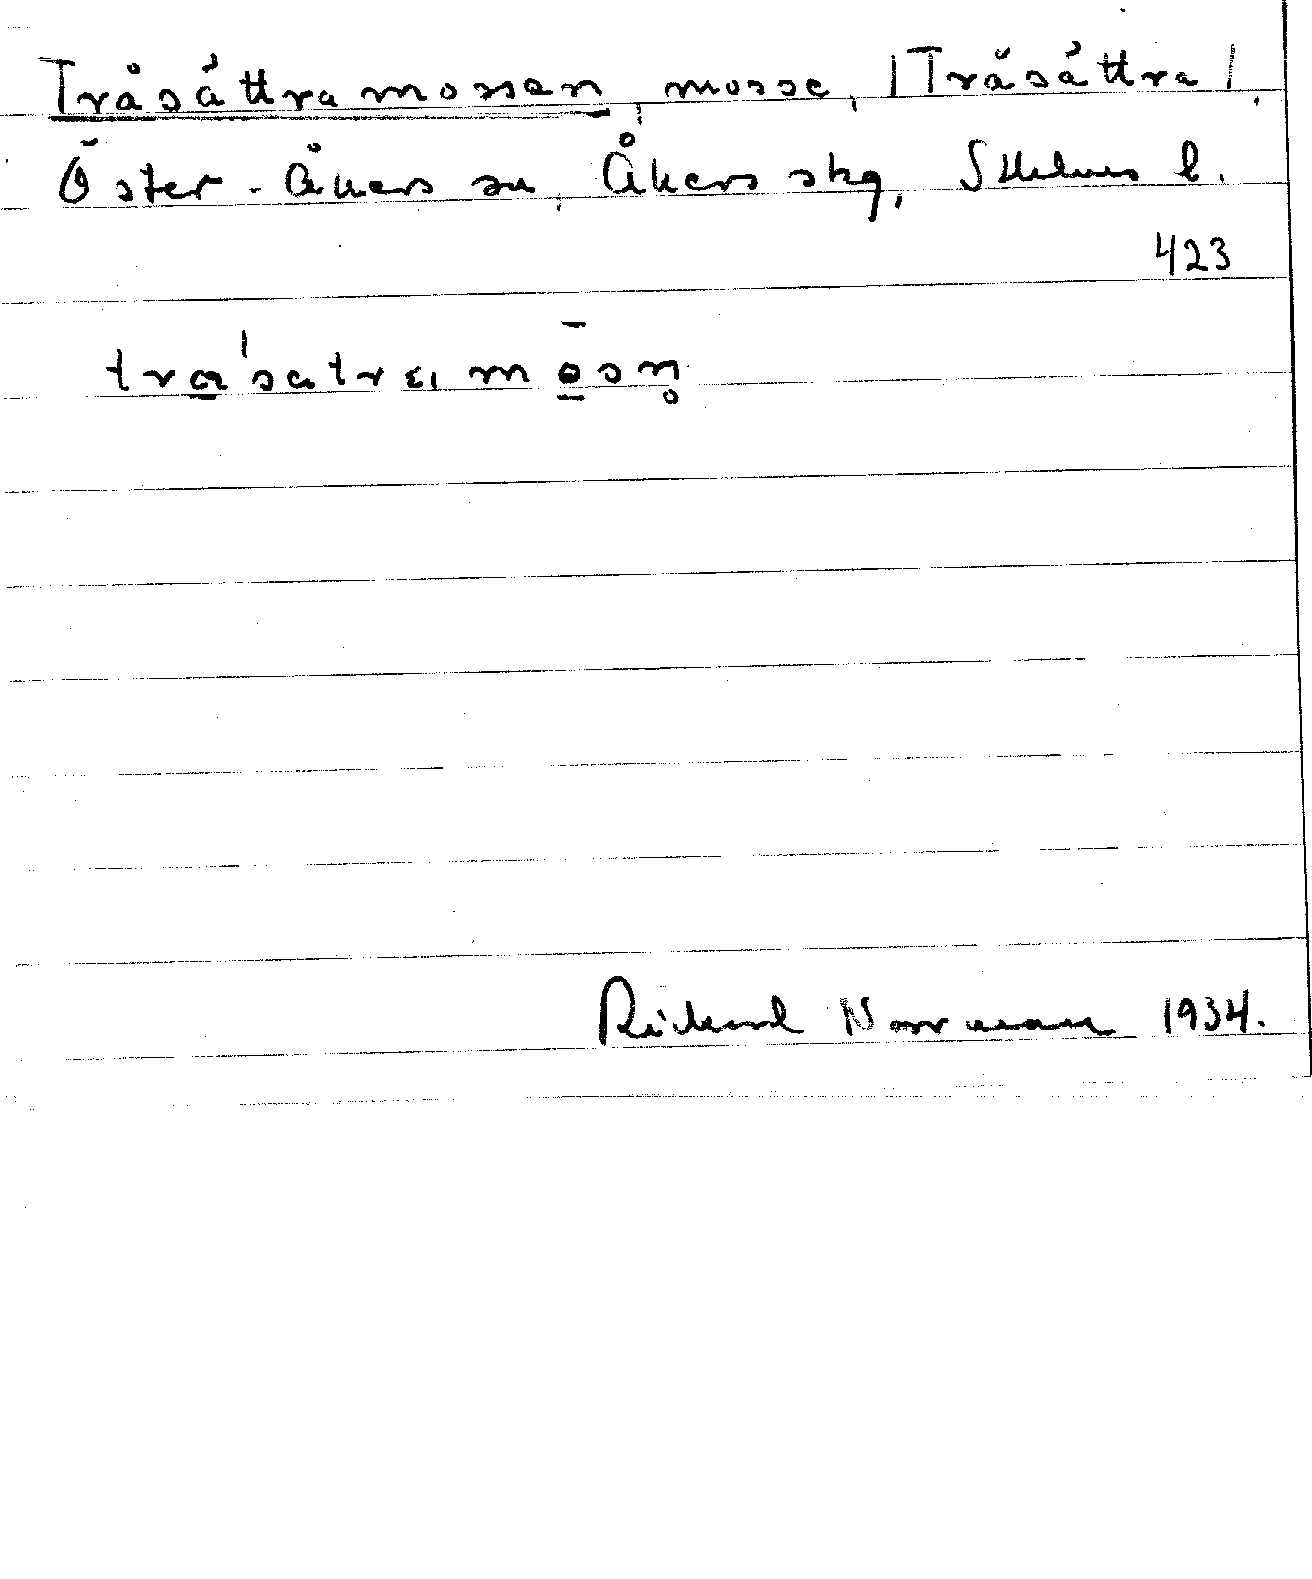 Tråsättramossen, mosse, /Tråsättra/,
Öster-Åkers sn, Åkers skg, Sthlms l.
423
Rickard Norrman 1934.